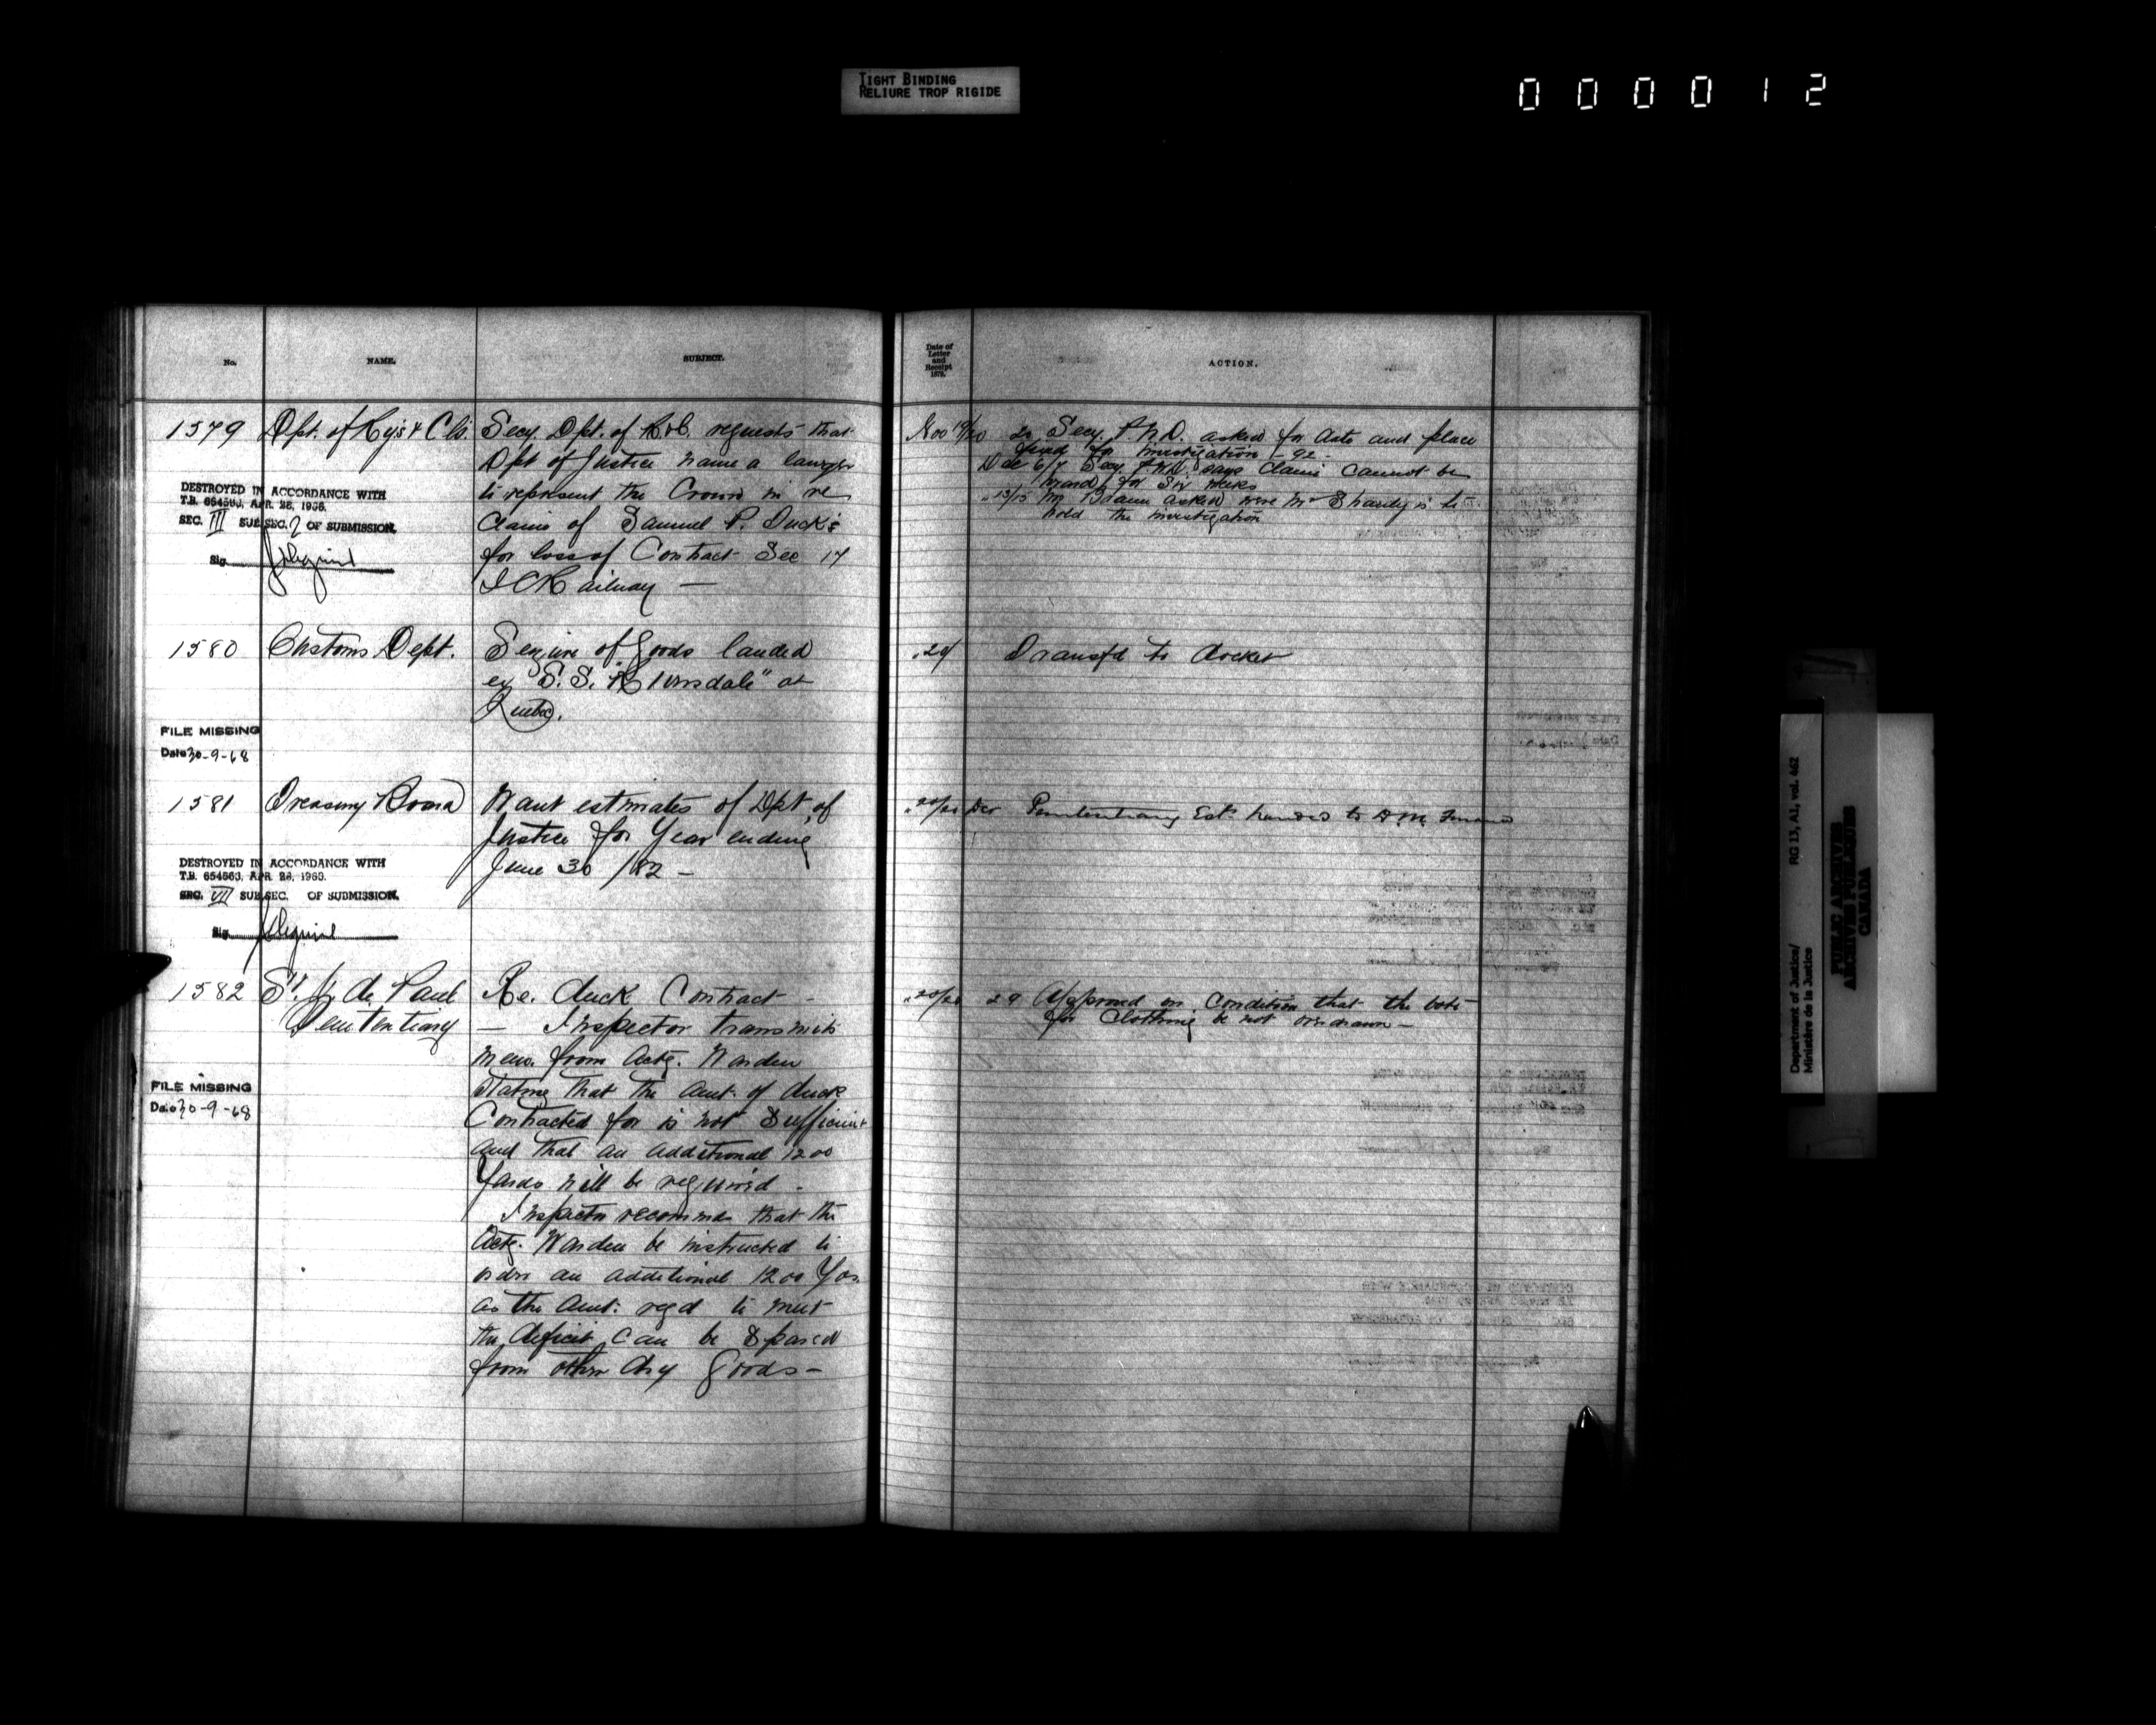 TIGHT BINDING
RELIURE TROP RIGIDE
000012
No.
NAME.
SUBJECT.
Date of
Letter
and
Receipt
1879.
ACTION.
1579
Dpt. of Rys & Cls.
Secy. Dpt. of R & C. requests that
Dpt of Justice name a lawyer
to represent the Crown in re
Claim of Samuel P. Tuck's
for loss of Contract Sec 17
I C Railway —
DESTROYED IN ACCORDANCE WITH
T.B. 654563, APR. 28, 1966.
SEC. III SUB SEC. 2 OF SUBMISSION.
Sig.
Nov 19/20
20 Secy. asked for date and place
fixed for investigation - 92 -
Dec 6/7 Secy. says Claims cannot be
heard for six weeks
" 13/15 Mr Braun asked were Mr Shanly is to
hold the investigation
1580
Customs Dept.
Seizure of goods landed
ex S.S. at
Quebec.
" 20/
Transf'd to docket
FILE MISSING
Date 30-9-68
1581
Treasury Board
Want estimates of Dpt. of
Justice for Year ending
June 30 /82 —
" 20/20 Dec
Penitentiary Est. handed to D.M. Finance
DESTROYED IN ACCORDANCE WITH
T.B. 654563, APR. 28, 1966.
SEC. VII SUB SEC. OF SUBMISSION.
Sig.
1582
St. V. de Paul
Penitentiary
Re. duck Contract -
— Inspector transmits
memo. from Actg. Warden
stating that the amt. of duck
Contracted for is not Sufficient
and that an additional 1200
Yards will be required -
Inspector recommends that the
Actg. Warden be instructed to
order an additional 1200 Yds.
as the amt. reqd to meet
the deficit can be spared
from other dry goods —
" 20/20
29 Approved on condition that the vote
for clothing be not overdrawn —
FILE MISSING
Date 30-9-68
Department of Justice/
Ministère de la Justice
RG 13, A1, vol. 462
PUBLIC ARCHIVES
ARCHIVES PUBLIQUES
CANADA